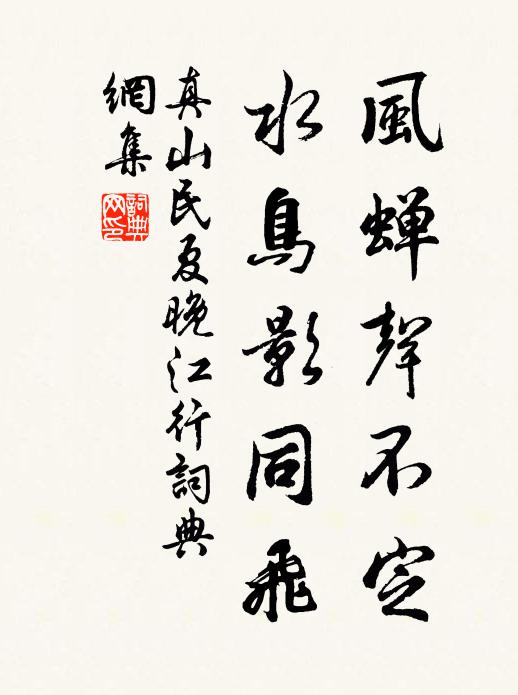 風蝉聲不定
水鳥影同飛
真山民夏晚江行詞典
網集
詞典
网印